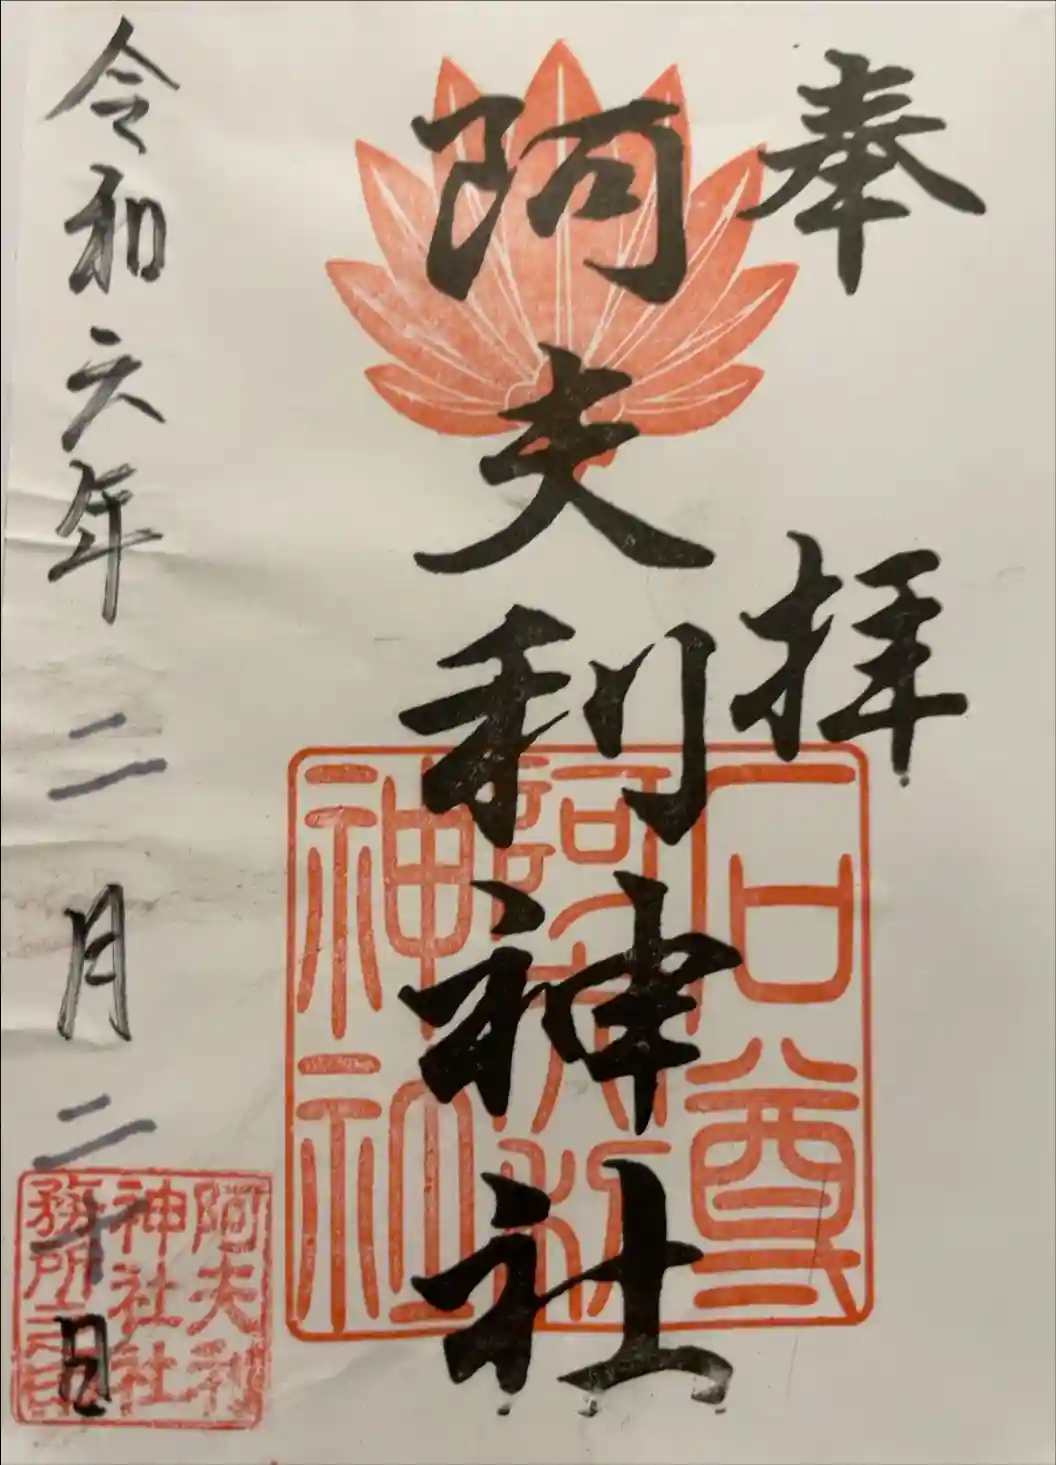 奉拝
阿夫利神社
石尊
阿夫利
神社
令和六年二月二十日
阿夫利
神社社
務所之印